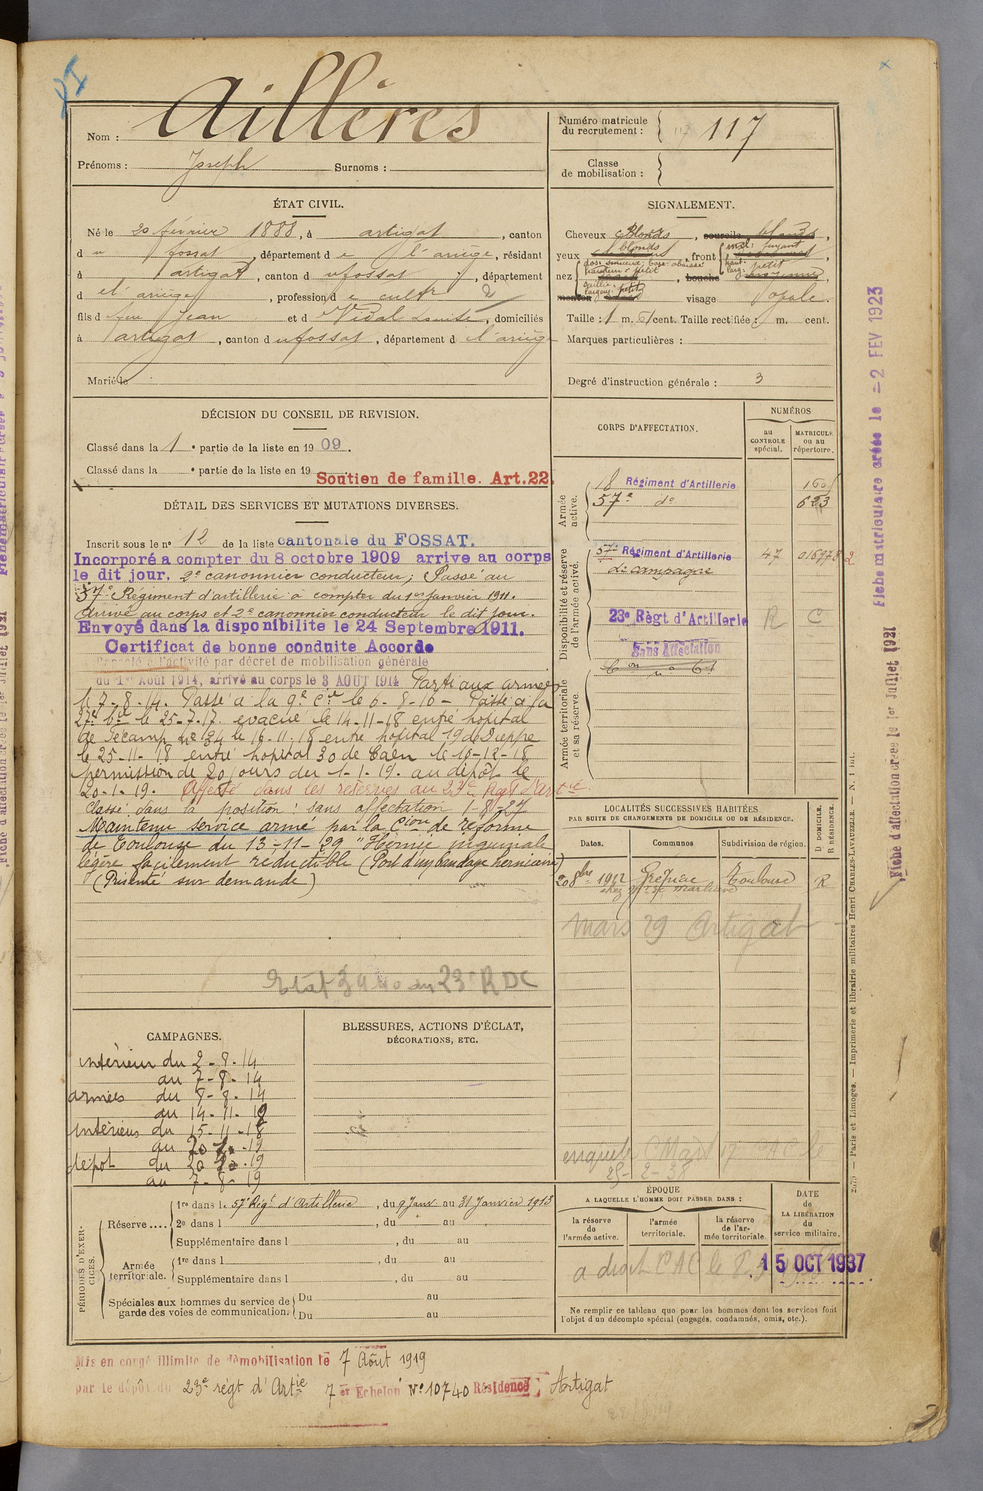 Aillères
Nom :
Prénoms : Joseph Surnoms :
Numéro matricule du recrutement : 117
Classe de mobilisation :
ÉTAT CIVIL.
Né le 20 février 1888, à artigat, canton
du fossat, département de l'ariège, résidant
à artigat, canton du fossat, département
d e l'ariège, profession d e cultr
fils d feu Jean et d Vidal Louise, domiciliés
à artigat, canton du fossat, département d e l'ariège
Marié le
SIGNALEMENT.
Cheveux blonds, sourcils blonds,
yeux blonds, front incl: fuyant
nez petit bouche
menton visage ovale.
Taille : 1 m. 61 cent. Taille rectifiée : m. cent.
Marques particulières :
Degré d'instruction générale : 3
DÉCISION DU CONSEIL DE REVISION.
Classé dans la 1e partie de la liste en 1909.
Classé dans la e partie de la liste en 19
Soutien de famille. Art.22
DÉTAIL DES SERVICES ET MUTATIONS DIVERSES.
Inscrit sous le no 12 de la liste cantonale du FOSSAT.
Incorporé à compter du 8 octobre 1909 arrive au corps
le dit jour. 2e canonnier conducteur; Passé au
57e Régiment d'artillerie à compter du 1er janvier 1911.
Arrivé au corps et 2e canonnier conducteur le dit jour.
Envoyé dans la disponibilite le 24 Septembre 1911.
Certificat de bonne conduite Accordé
Rappelé à l'activité par décret de mobilisation générale
du 1er Août 1914, arrivé au corps le 3 AOUT 1914 Parti aux armées
le 7-8-14. Passé à la 9e Cie le 6-8-16 - Passé à la
27e bie le 25-7-17. évacué le 14-11-18 entré hôpital
de Fécamp no 34 le 16-11-18 entré hôpital 19 de Dieppe
le 25-11-18 entré hôpital 30 de Caen le 10-12-18
permission de 20 jours du 1-1-19. au dépôt le
20-1-19. Affecté dans les réserves au 23e Regt d'artie
Classé dans la position "sans affectation" 1-8-27
Maintenu service armé par la Cion de réforme
de Toulouse du 13-11-29 "Hernie inguinale
légère facilement réductible (Port d'un bandage herniaire)
(Présenté sur demande)
CORPS D'AFFECTATION.
NUMÉROS
au CONTROLE spécial.
MATRICULE ou au répertoire.
Armée active.
18 Régiment d'Artillerie
57e do 623
Disponibilité et réserve de l'armée active.
57e Régiment d'Artillerie 47
de campagne
23e Règt d'Artillerie R C
Sans Affectation
Armée territoriale et sa réserve.
LOCALITÉS SUCCESSIVES HABITÉES
PAR SUITE DE CHANGEMENTS DE DOMICILE OU DE RÉSIDENCE.
Dates. Communes Subdivision de région. D DOMICILE. R RÉSIDENCE.
20 8bre 1912 Toulouse R
mars 29 Artigat
CAMPAGNES.
intérieur du 2-8-14
au 7-8-14
armées du 8-8-14
au 14-11-18
intérieur du 15-11-18
au 20-1-19
dépôt du 20-1-19
au 7-8-19
BLESSURES, ACTIONS D'ÉCLAT,
DÉCORATIONS, ETC.
PÉRIODES D'EXERCICES.
Réserve....
1re dans l. 57e Régt d'Artillerie, du 9 Janv au 31 Janvier 1913
2e dans l , du au
Supplémentaire dans l , du au
Armée territoriale.
1re dans l , du au
Supplémentaire dans l , du au
Spéciales aux hommes du service de garde des voies de communication.
Du au
Du au
ÉPOQUE
A LAQUELLE L'HOMME DOIT PASSER DANS :
la réserve de l'armée active.
l'armée territoriale.
la réserve de l'armée territoriale.
DATE de LA LIBÉRATION du service militaire.
15 OCT 1937
Ne remplir ce tableau que pour les hommes dont les services font
l'objet d'un décompte spécial (engagés, condamnés, omis, etc.).
Mis en congé illimité de démobilisation le 7 Août 1919
par le dépôt du 23e régt d'Artie 7er Echelon No 10740 Résidence Artigat
Fiche matriculaire créée le =2 FEV 1923
Fiche d'affectation créée le 1er Juillet 1921
Paris et Limoges. — Imprimerie et librairie militaires Henri CHARLES-LAVAUZELLE. — N. 1 int.